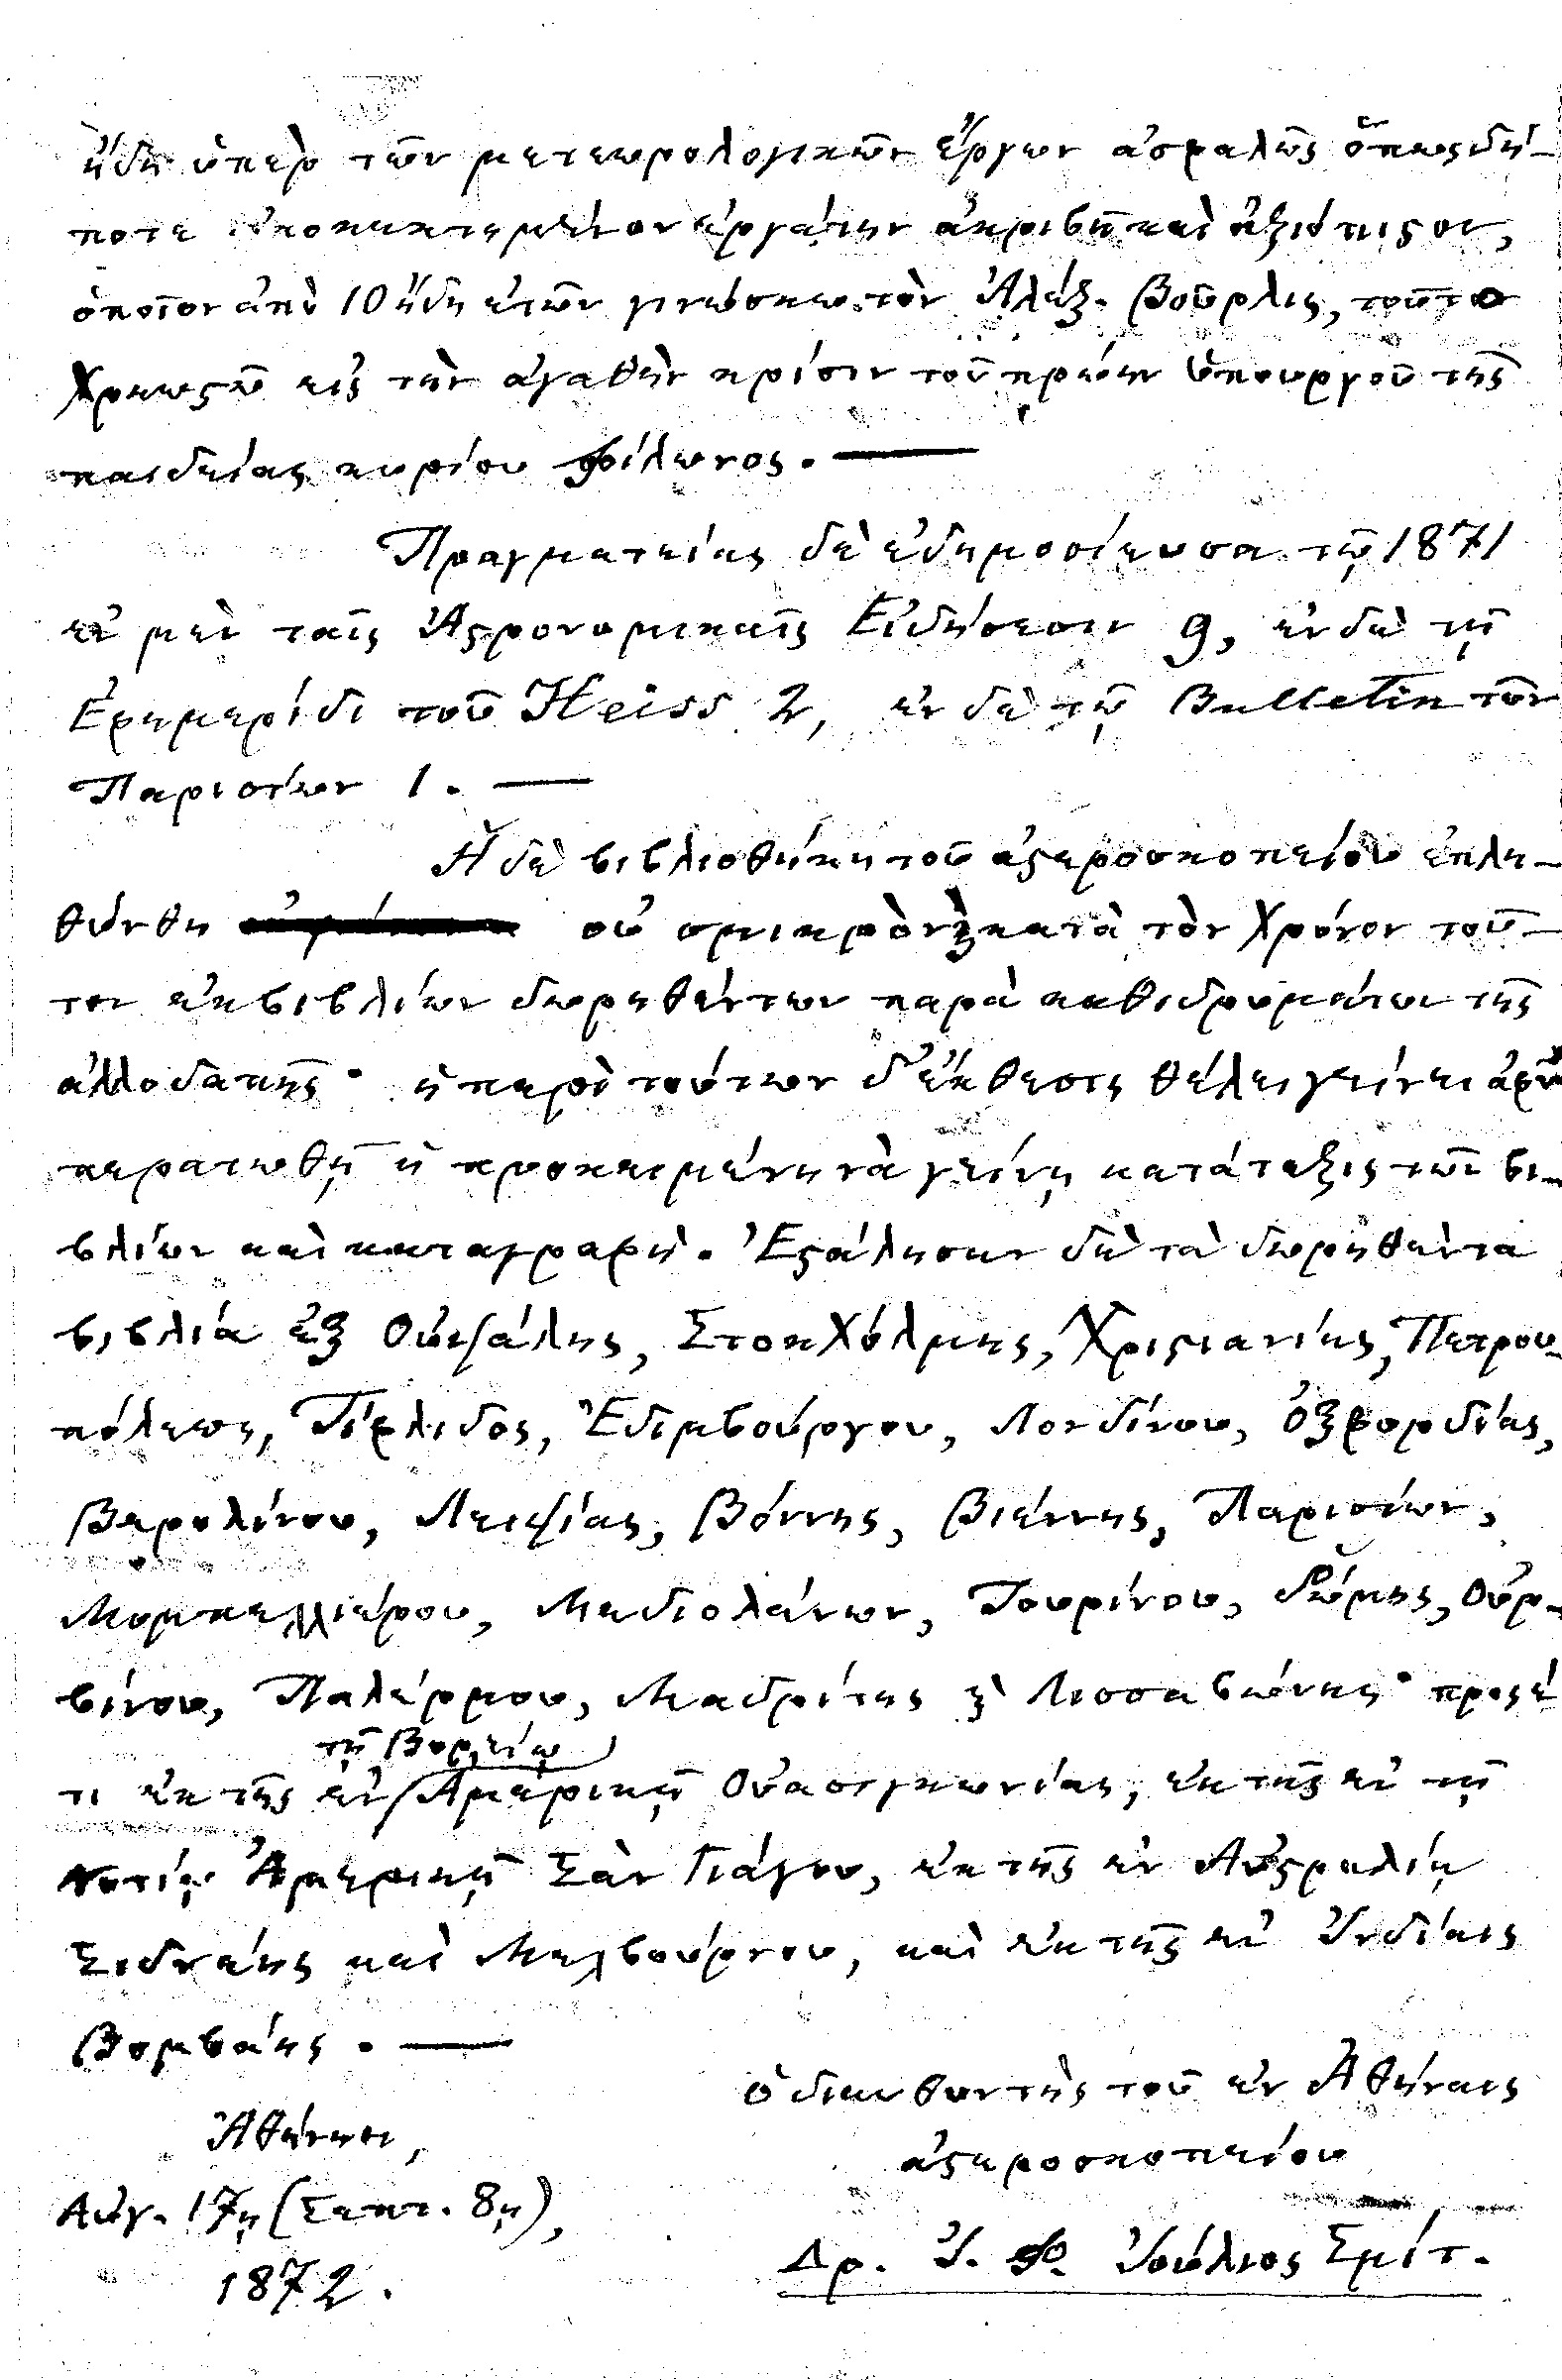 ἤδη ὑπὲρ τῶν μετεωρολογικῶν ἔργων ἀσφαλῶς ὅπωςδή-
ποτε ἀποκεκτημένον ἐργάτην ἀκριβῆ καὶ ἀξιόπιςον,
ὁποῖον ἀπὸ 10 ἤδη ἐτῶν γινώσκω τὸν Ἀλέξ. Βοῦρλις, τοῦτο
χρεωςῶ εἰς τὴν ἀγαθὴν κρίσιν τοῦ πρώην ὑπουργοῦ τῆς
παιδείας κυρίου Φίλωνος. —
Πραγματείας δὲ ἐδημοσίευσα τῷ 1871
ἐν μὲν ταῖς Ἀςρονομικαῖς Εἰδήσεσιν 9, ἐν δὲ τῇ
Ἐφημερίδι τοῦ Heiss 2, ἐν δὲ τῷ Bulletin τῶν
Παρισίων 1. —
Ἡ δὲ βιβλιοθήκη τοῦ ἀςεροσκοπείου ἐπλη-
θύνθη οὐ σμικρὸν κατὰ τὸν χρόνον τοῦ-
τον ἐκ βιβλίων δωρηθέντων παρὰ καθιδρυμάτων τῆς
ἀλλοδαπῆς· ἡ περὶ τούτων δ' ἔκθεσις θέλει γείνει ἀφοῦ
περατωθῇ ἡ προκειμένη νὰ γείνῃ κατάταξις τῶν βι-
βλίων καὶ καταγραφή. Ἐςάλησαν δὲ τὰ δωρηθέντα
βιβλία ἐξ Οὐψάλης, Στοκχόλμης, Χριςιανίας, Πετρου-
πόλεως, Τίφλιδος, Ἐδιμβούργου, Λονδίνου, Ὀξφορδίας,
Βερολίνου, Λειψίας, Βόννης, Βιέννης, Παρισίων,
Μομπελλιέρου, Μεδιολάνων, Τουρίνου, Ῥώμης, Οὐρ-
βίνου, Παλέρμου, Μαδρίτης ϗ Λισσαβώνης· προςέ
τῇ Βορείῳ
τι ἐκ τῆς ἐν Ἀμερικῇ Οὐασιγκωνίας, ἐκ τῆς ἐν τῇ
Νοτίῳ Ἀμερικῇ Σὰν Γιάγου, ἐκ τῆς ἐν Αὐςραλίᾳ
Σιδνέης καὶ Μελβούρνου, καὶ ἐκ τῆς ἐν Ἰνδίαις
Βομβάης. —
ὁ διευθυντὴς τοῦ ἐν Ἀθήναις
ἀςεροσκοπείου
Δρ. Ἰ. Φ. Ἰούλιος Σμίτ.
Ἀθήνησι,
Αὐγ. 17ῃ (Σεπτ. 8ῃ),
1872.